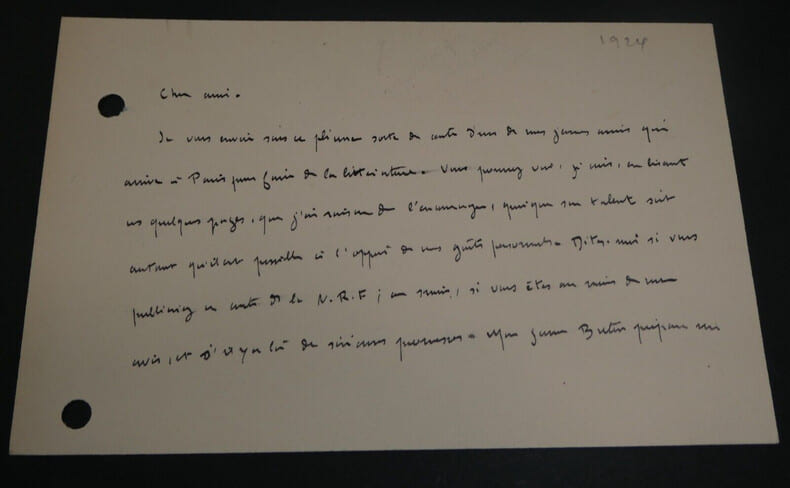 1924
Cher ami.
Je vous envoie sous ce pli une sorte de conte d'un de mes jeunes amis qui
arrive à Paris pour faire de la littérature. Vous pourrez voir, je crois, en lisant
ces quelques pages, que j'ai raison de l'encourager, quoique son talent soit
autant qu'il est possible à l'opposé de mes goûts personnels. Dites-moi si vous
publieriez ce conte de la N.R.F ; au moins, si vous êtes au moins de mon
avis, et s'il y a là de sérieuses promesses. Mon jeune prépare un